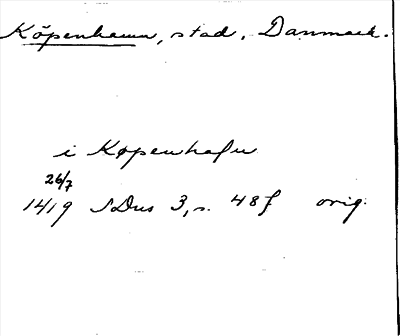 Köpenhamn, stad, Danmark.
i Køpenhafn
26/7
1419 SDns 3, s. 48f orig.